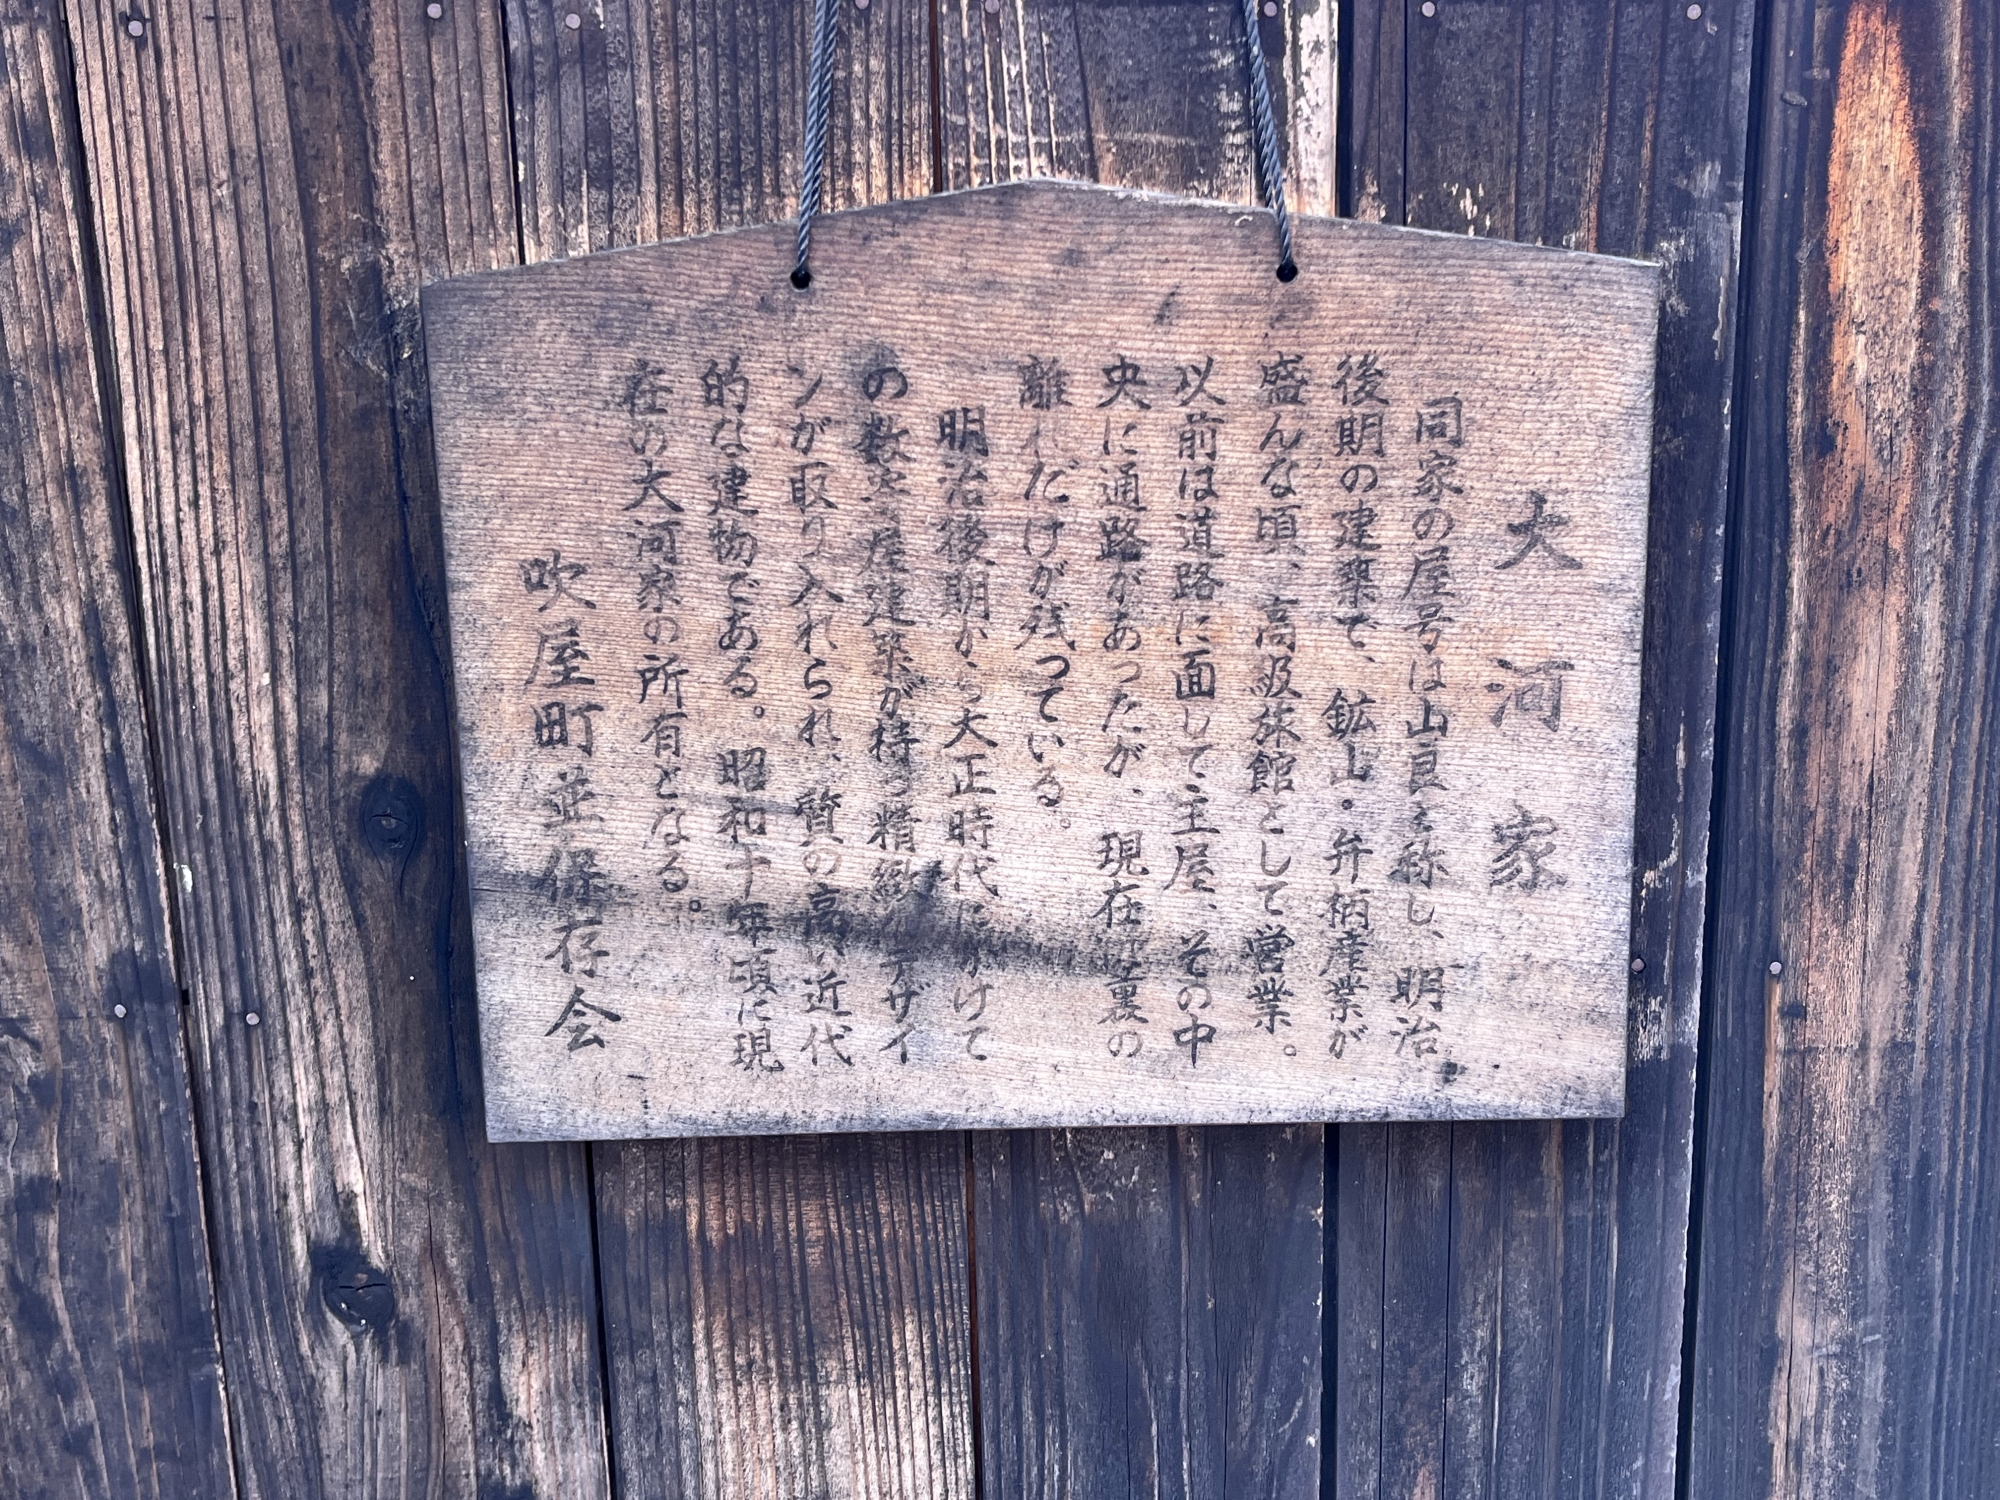 大河家
同家の屋号は山良と称し、明治
後期の建築で、鉱山・弁柄産業が
盛んな頃、高級旅館として営業。
以前は道路に面して主屋、その中
央に通路があったが、現在は裏の
離れだけが残っている。
明治後期から大正時代にかけて
の数寄屋建築が持つ精緻なデザイ
ンが取り入れられ、質の高い近代
的な建物である。昭和十年頃に現
在の大河家の所有となる。
吹屋町並保存会